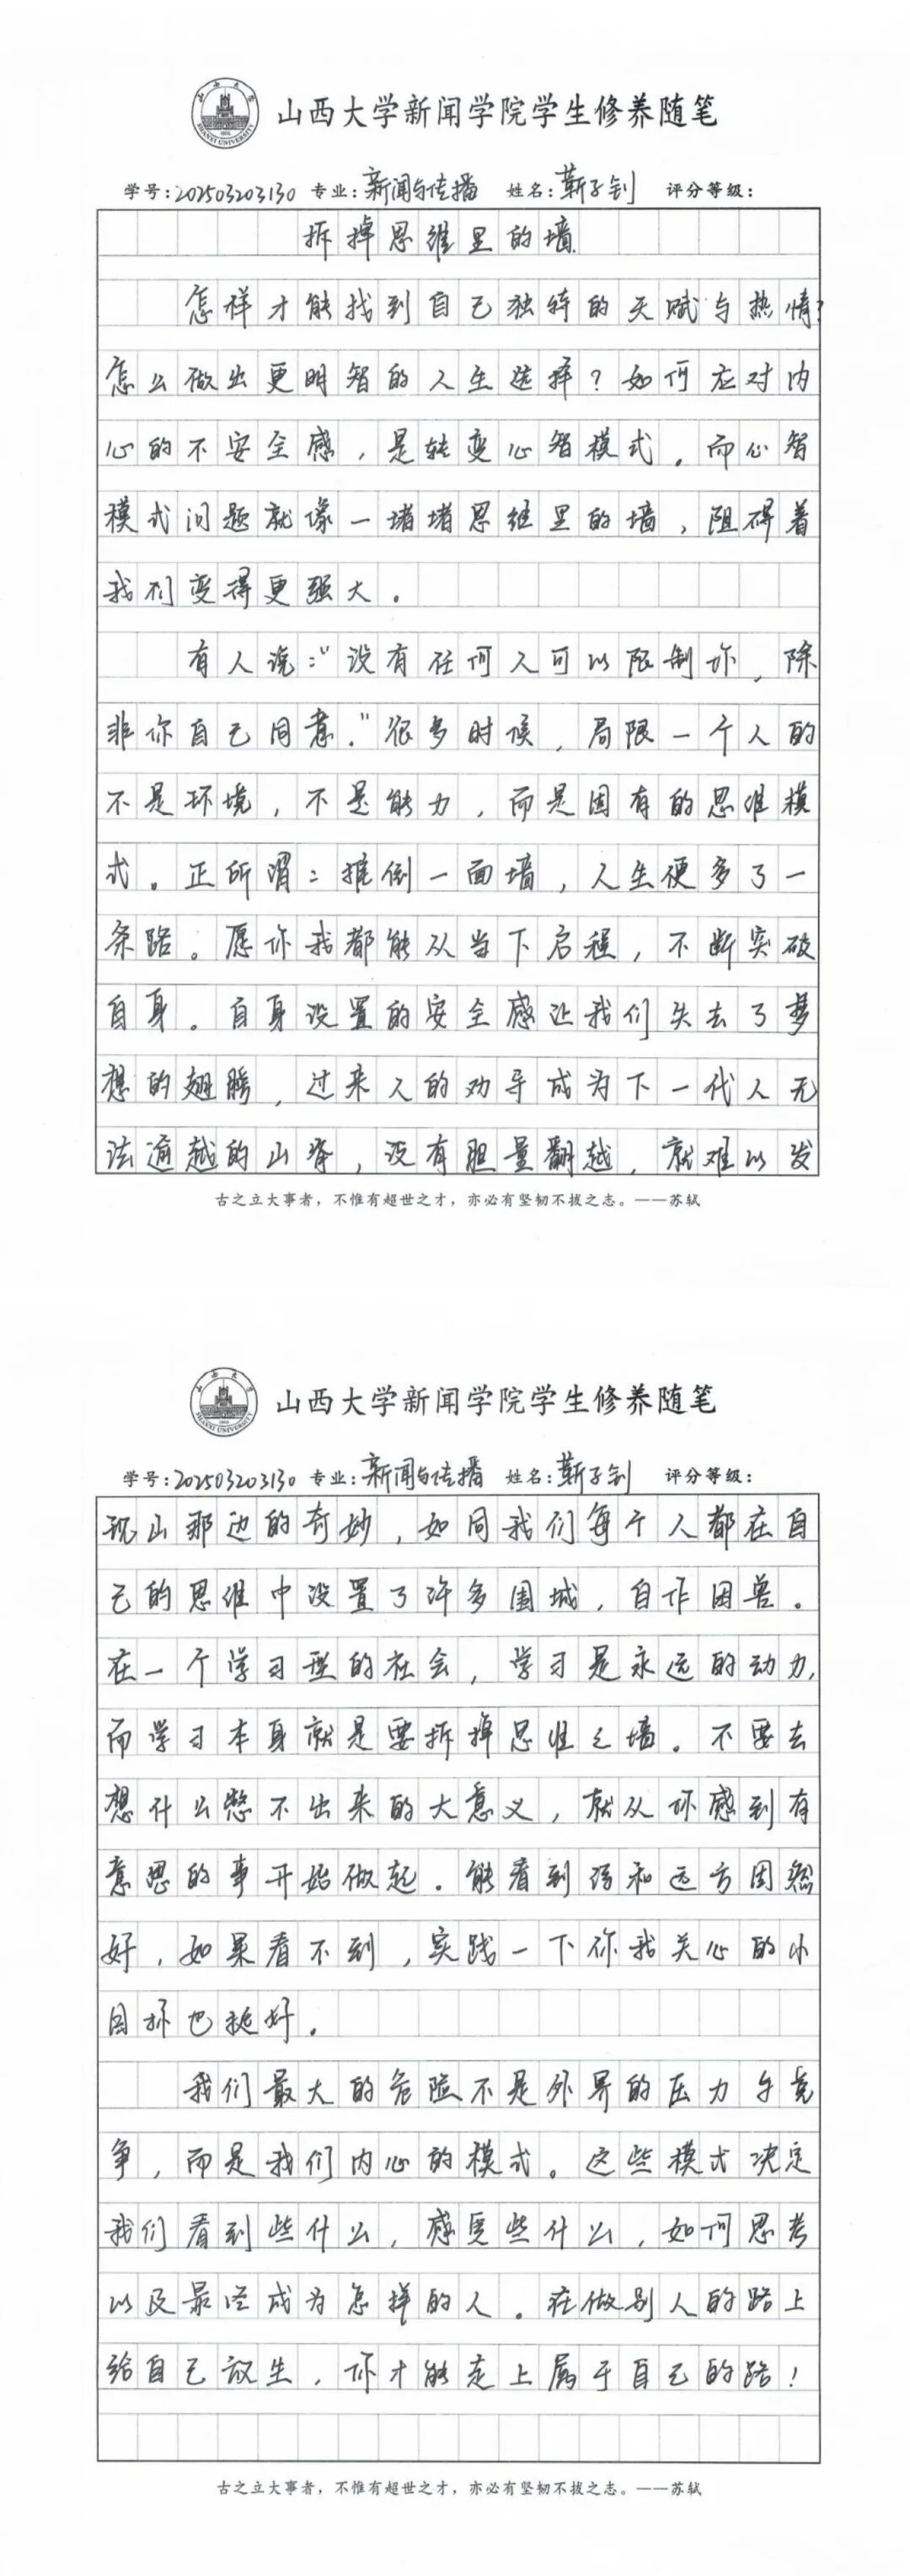 山西大学新闻学院学生修养随笔
学号:202503203130 专业:新闻与传播 姓名:靳子钊 评分等级:
拆掉思维里的墙
怎样才能找到自己独特的天赋与热情?
怎么做出更明智的人生选择?如何应对内
心的不安全感,是转变心智模式。而心智
模式问题就像一堵堵思维里的墙,阻碍着
我们变得更强大。
有人说:“没有任何人可以限制你,除
非你自己同意。”很多时候,局限一个人的
不是环境,不是能力,而是固有的思维模
式。正所谓:推倒一面墙,人生便多了一
条路。愿你我都能从当下启程,不断突破
自身。自身设置的安全感让我们失去了梦
想的翅膀,过来人的劝导成为下一代人无
法逾越的山脊,没有胆量翻越,就难以发
古之立大事者,不惟有超世之才,亦必有坚韧不拔之志。——苏轼
山西大学新闻学院学生修养随笔
学号:202503203130 专业:新闻与传播 姓名:靳子钊 评分等级:
现山那边的奇妙,如同我们每个人都在自
己的思维中设置了许多围城,自作困兽。
在一个学习型的社会,学习是永远的动力,
而学习本身就是要拆掉思维之墙。不要去
想什么憋不出来的大意义,就从你感到有
意思的事开始做起。能看到诗和远方固然
好,如果看不到,实践一下你我关心的小
目标也挺好。
我们最大的危险不是外界的压力与竞
争,而是我们内心的模式。这些模式决定
我们看到些什么,感受些什么,如何思考
以及最终成为怎样的人。在做别人的路上
给自己放生,你才能走上属于自己的路!
古之立大事者,不惟有超世之才,亦必有坚韧不拔之志。——苏轼